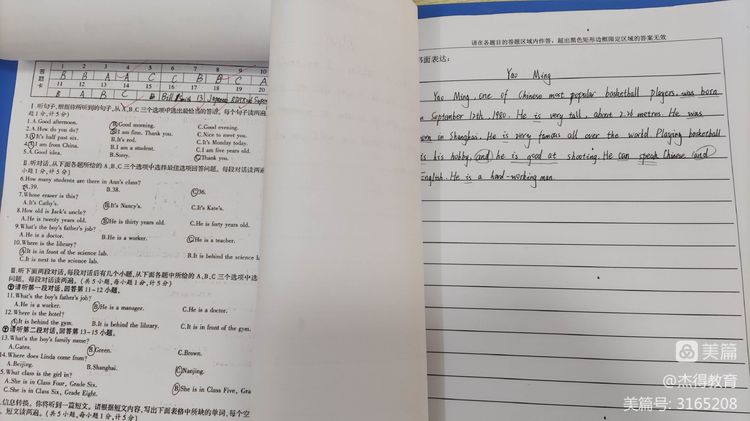 1 2 3 4 5 6 7 8 9 10
答题卡
B B A A C C B B C A
11 12 13 14 15 16 17 18 19 20
B A B C B
I.听句子,根据你所听到的句子,从A、B、C三个选项中选出最恰当的答语。每个句子读两遍
题1分,计5分)
1.A.Good afternoon. B.Good morning. C.Good evening.
2.A.How do you do? B.I am fine. Thank you. C.Nice to meet you.
3.A.It's half past six. B.I'm not well. C.It's Monday today.
4.A.I am from China. B.I am a student. C.I am five years old.
5.A.Good idea. B.Sorry. C.Thank you.
II.听对话,从下面各题所给的A、B、C三个选项中选择最佳选项回答问题。每段对话读两遍
题1分,计5分)
6.How many students are there in Ann's class?
A.39. B.38. C.36.
7.Whose eraser is this?
A.It's Cathy's. B.It's Nancy's. C.It's Kate's.
8.How old is Jack's uncle?
A.He is twenty years old. B.He is thirty years old. C.He is forty years old.
9.What's the boy's father's job?
A.He is a doctor. B.He is a worker. C.He is a teacher.
10.Where is the library?
A.It is in front of the science lab. B.It is behind the science l
C.It is next to the science lab.
III.听下面两段对话,每段对话后有几个小题,从下面各题中所给的A、B、C三个选项中选
问题。每段对话读两遍。(共5小题,每小题1分,计5分)
请听第一段对话,回答第11-12小题。
11.What's the boy's father's job?
A.He is a worker. B.He is a manager. C.He is a doctor.
12.Where is the hotel?
A.It is behind the gym. B.It is behind the library. C.It is in front of the gym.
请听第二段对话,回答第13-15小题。
13.What's the boy's family name?
A.Gates. B.Green. C.Brown.
14.Where does Linda come from?
A.Beijing. B.Shanghai. C.Nanjing.
15.What class is the girl in?
A.She is in Class Four, Grade Six. B.She is in Class Five, Gra
C.She is in Class Six, Grade Eight.
信息转换。你将听到一篇短文。请根据短文内容,写出下面表格中所缺的单词,每个空
短文读两遍。(共5小题,每小题1分,计5分)
请在各题目的答题区域内作答,超出黑色矩形边框限定区域的答案无效
书面表达:
Yao Ming
Yao Ming, one of Chinese most popular basketball players. was born
n September 12th. 1980. He is very tall, about 2.26 metres. He was
orn in Shanghai. He is very famous all over the world. Playing basketball
is his hobby, and he is good at shooting. He can speak Chinese and
English. He is a hard-working man.
美篇
@杰得教育
美篇号: 3165208